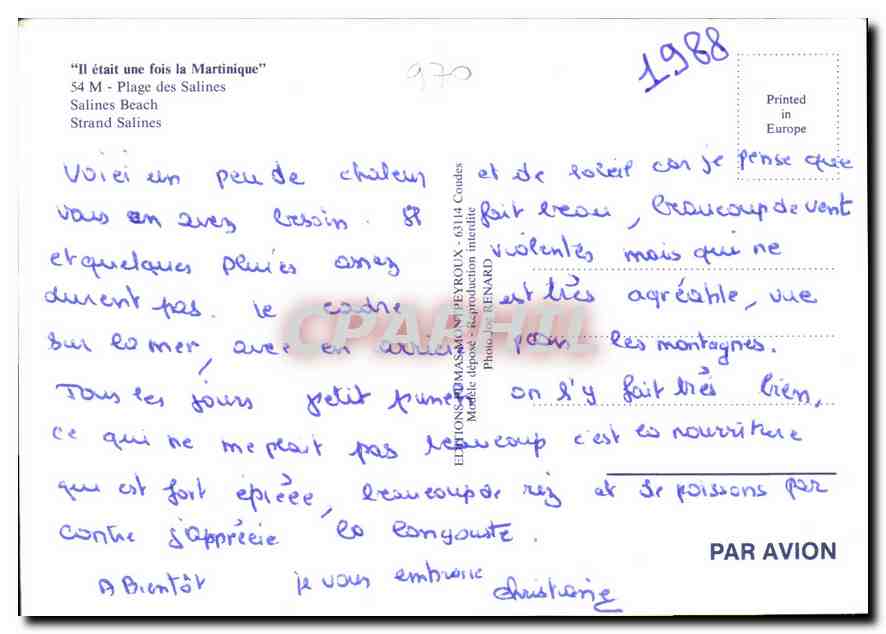 "Il était une fois la Martinique"
54 M - Plage des Salines
Salines Beach
Strand Salines
970
1988
Printed
in
Europe
Voici un peu de chaleur et de soleil car je pense que
vous en avez besoin. Il fait beau, beaucoup de vent
et quelques pluies assez violentes mais qui ne
durent pas. Le cadre est très agréable, vue
sur la mer, avec en arrière plan les montagnes.
Tous les jours petit punch on s'y fait très bien,
ce qui ne me plait pas beaucoup c'est la nourriture
qui est fort épicée, beaucoup de riz et de poissons par
contre j'apprécie la langouste.
A Bientôt je vous embrasse Christiane
EDITIONS DUMAS-MONTPEYROUX - 63114 Coudes
Modèle déposé - Reproduction interdite
Photo Joe RENARD
CPAPHIL
PAR AVION